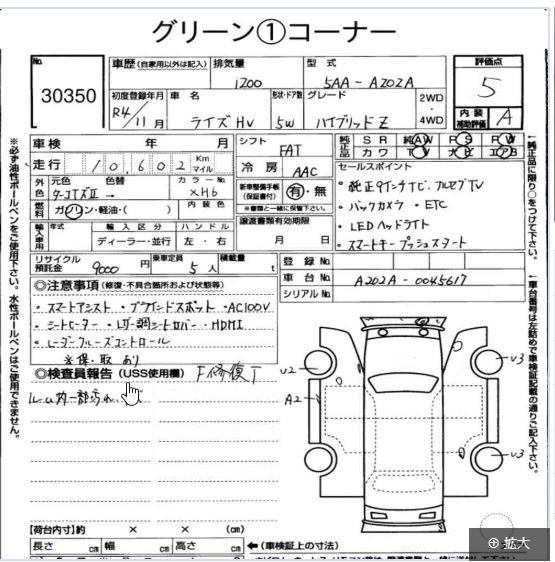 グリーン①コーナー
No.
30350
車歴 (自家用以外は記入)
排気量
1200
型式
5AA-A202A
評価点
5
初度登録年月
R4/11月
車名
ライズHV
形状・ドア数
5W
グレード
ハイブリッドZ
2WD・4WD
内装補助評価
A
車検 年 月
走行 10,602 Km マイル
シフト
FAT
冷房
AAC
純正品
SR 純AW PS PW
カワ TV ナビ エアB
外色
元色 色替
ターコイズⅡ →
カラーNo.
XH6
燃料
ガソリン・軽油・( )
内装色
新車整備手帳(保証書付)
有・無
※書類と一緒に保管下さい。
セールスポイント
・純正9インチナビ、フルセグTV
・バックカメラ ・ETC
・LEDヘッドライト
・スマートキープッシュスタート
輸入車用
年式
輸入区分
ディーラー・並行
ハンドル
左・右
譲渡書類有効期限
月 日
リサイクル預託金
9000 円
乗車定員
5人
積載量
t
登録No.
車台No.
A202A-0045617
シリアルNo.
◎注意事項 (修復・不具合箇所および状態等)
・スマートアシスト ・ブラインドスポット ・AC100V
・シートヒーター ・HDMI
・レーダークルーズコントロール
※保・取 あり
◎検査員報告 (USS使用欄)
F修復了
V2
A2
V3
V3
【荷台内寸】約 × × (cm)
長さ cm 幅 cm 高さ cm
←(車検証上の寸法)
※必ず油性ボールペンをご使用下さい。水性ボールペンは使用できません。
↑純正品に限り○をつけて下さい。
↑車台番号は左詰めで車検証記載の通りご記入下さい。
拡大